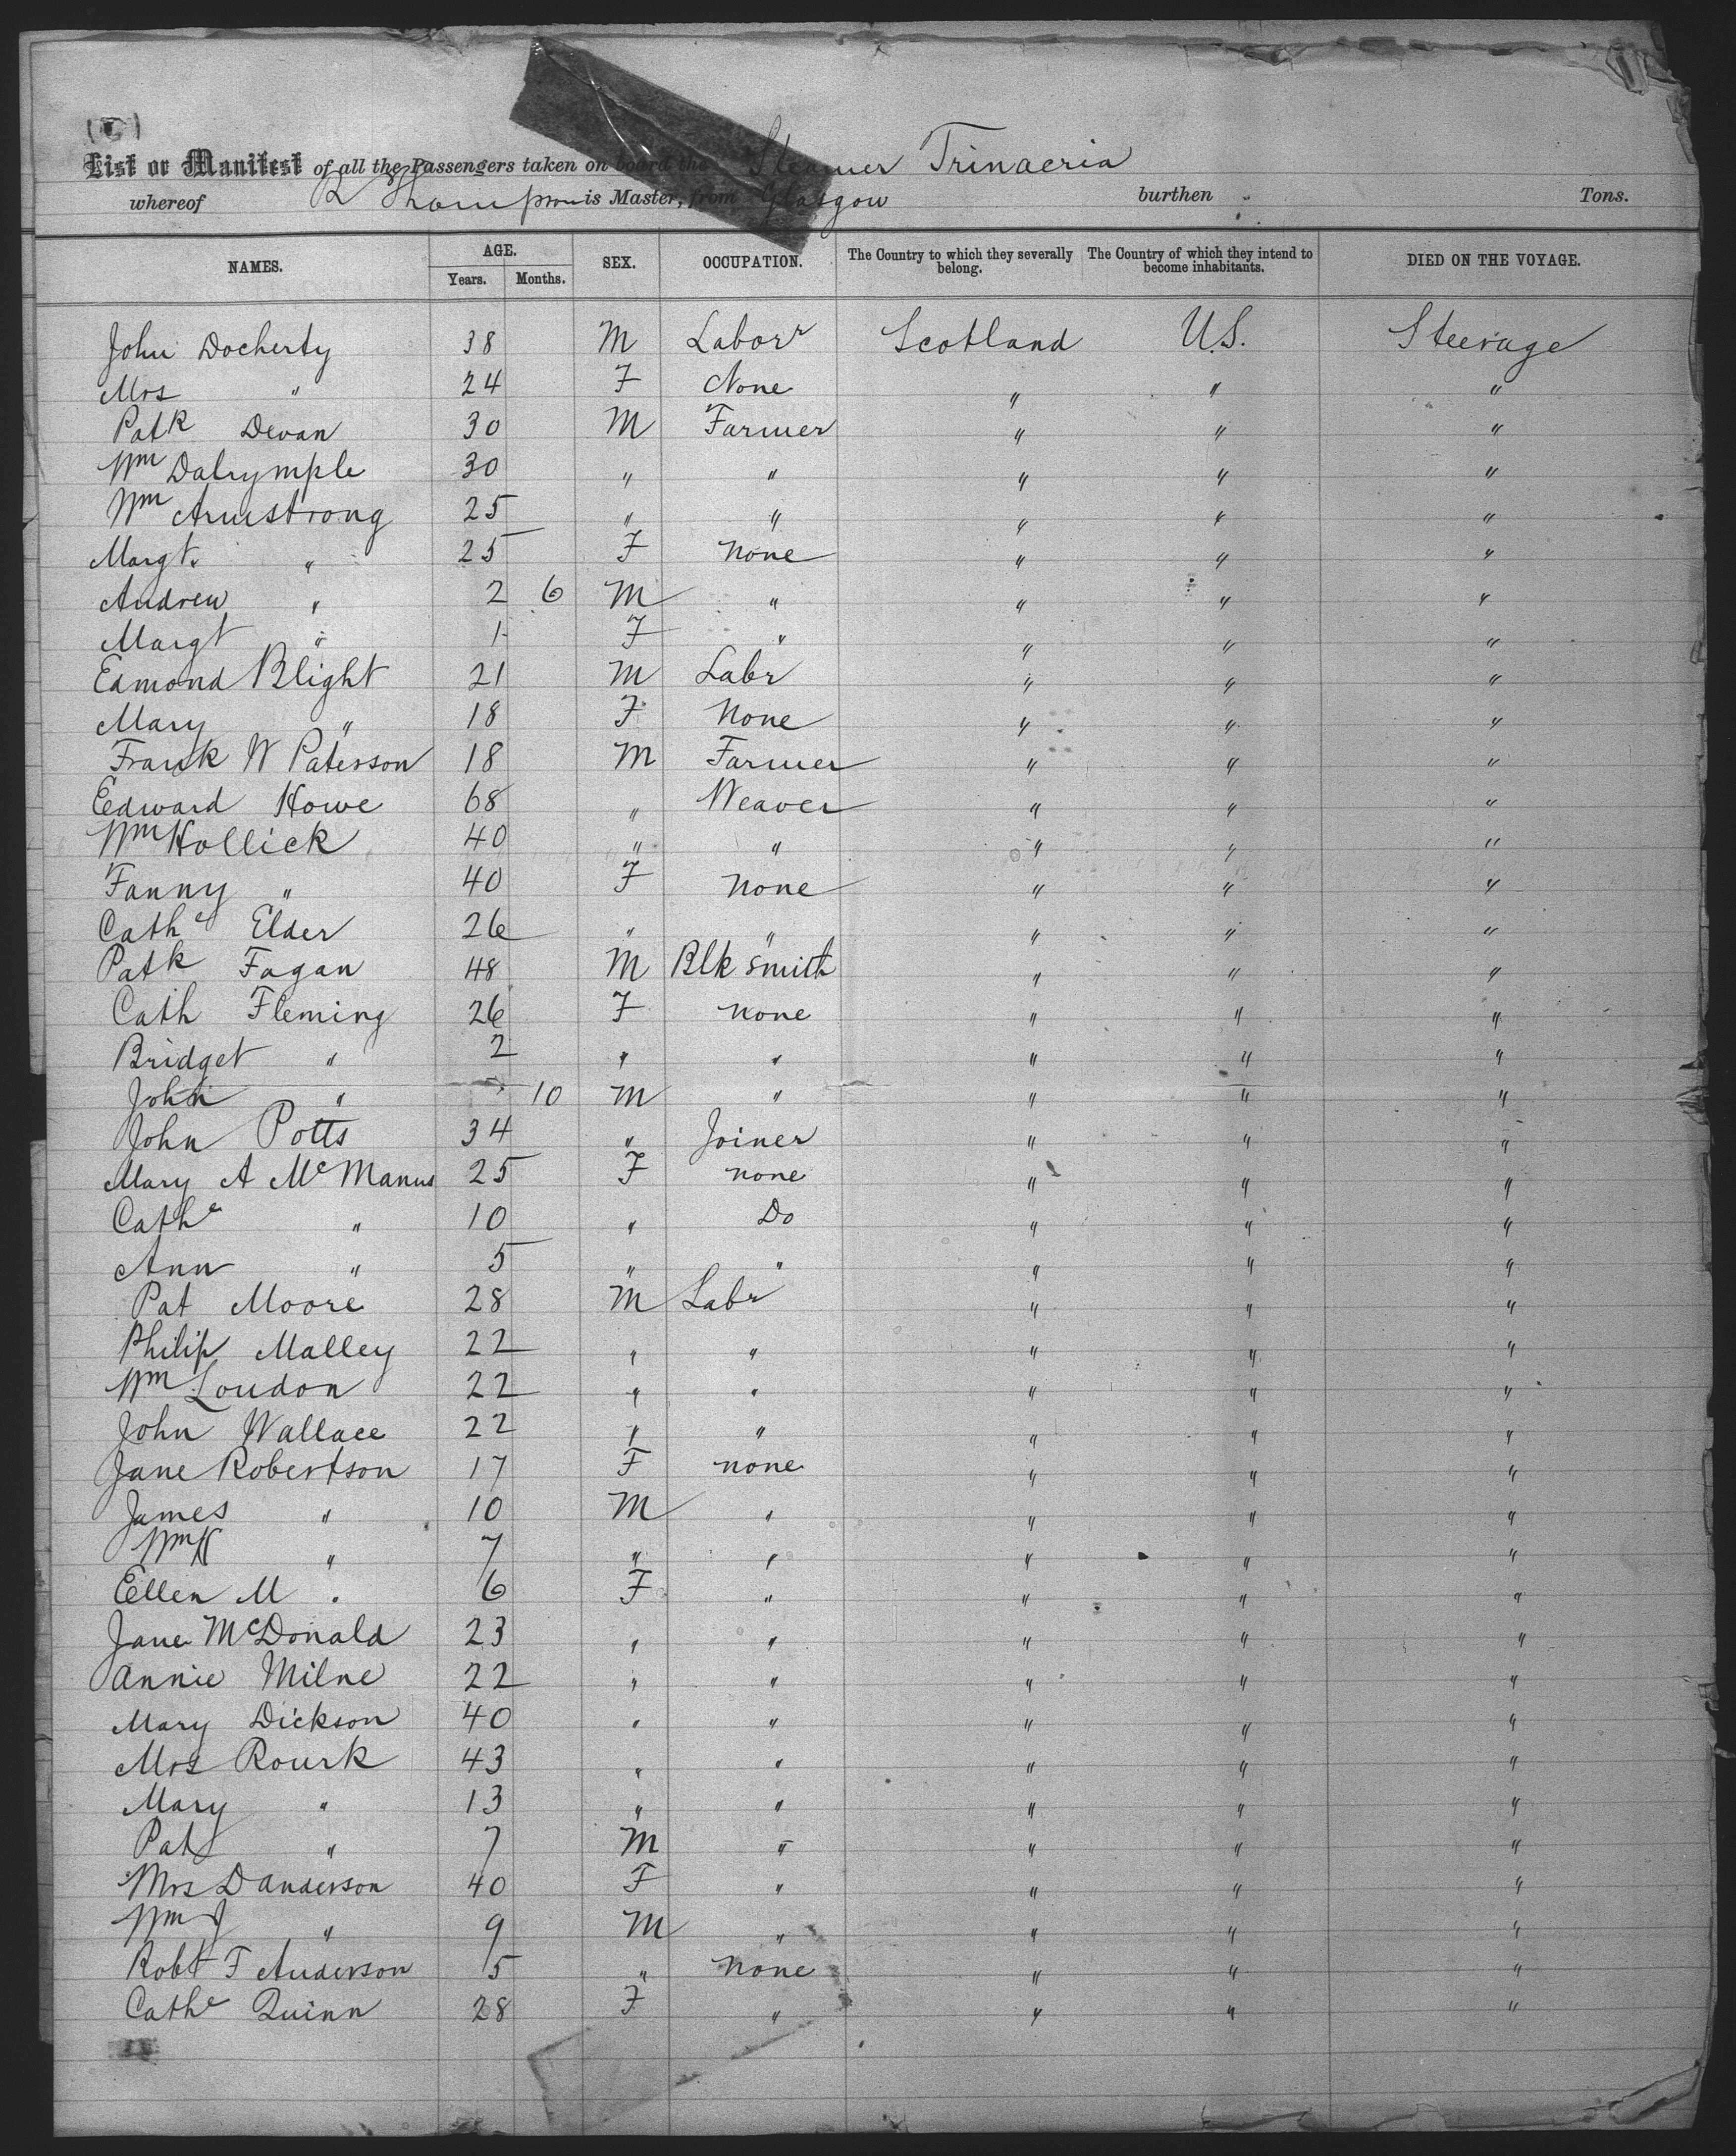 (C)
List or Manifest of all the Passengers taken on board the Steamer Trinacria
whereof R Thompson is Master, from Glasgow burthen Tons.
NAMES. AGE. Years. Months. SEX. OCCUPATION. The Country to which they severally belong. The Country of which they intend to become inhabitants. DIED ON THE VOYAGE.
John Docherty 38 M Labor r Scotland U.S. Steerage
Mrs " 24 F None " " "
Patk Devan 30 M Farmer " " "
Wm Dalrymple 30 " " " " "
Wm Armstrong 25 " " " " "
Margt. " 25 F none " " "
Andrew " 2 6 M " " " "
Margt " 1 F " " " "
Edmond Blight 21 M Labr " " "
Mary " 18 F None " " "
Frank W Paterson 18 M Farmer " " "
Edward Howe 68 " Weaver " " "
Wm Hollick 40 " " " " "
Fanny " 40 F none " " "
Cathe Elder 26 " " " " "
Patk Fagan 48 M Blk smith " " "
Cath Fleming 26 F none " " "
Bridget " 2 " " " " "
John " 10 M " " " "
John Potts 34 " Joiner " " "
Mary A McManus 25 F none " " "
Cathe " 10 " Do " " "
Ann " 5 " " " " "
Pat Moore 28 M Labr " " "
Philip Malley 22 " " " " "
Wm Loudon 22 " " " " "
John Wallace 22 " " " " "
Jane Robertson 17 F none " " "
James " 10 M " " " "
Wm " 7 " " " " "
Ellen M " 6 F " " " "
Jane McDonald 23 " " " " "
Annie Milne 22 " " " " "
Mary Dickson 40 " " " " "
Mrs Rourk 43 " " " " "
Mary " 13 " " " " "
Pat " 7 M " " " "
Mrs D anderson 40 F " " " "
Wm J " 9 M " " " "
Robt F Anderson 5 " none " " "
Cathe Quinn 28 F " " " "